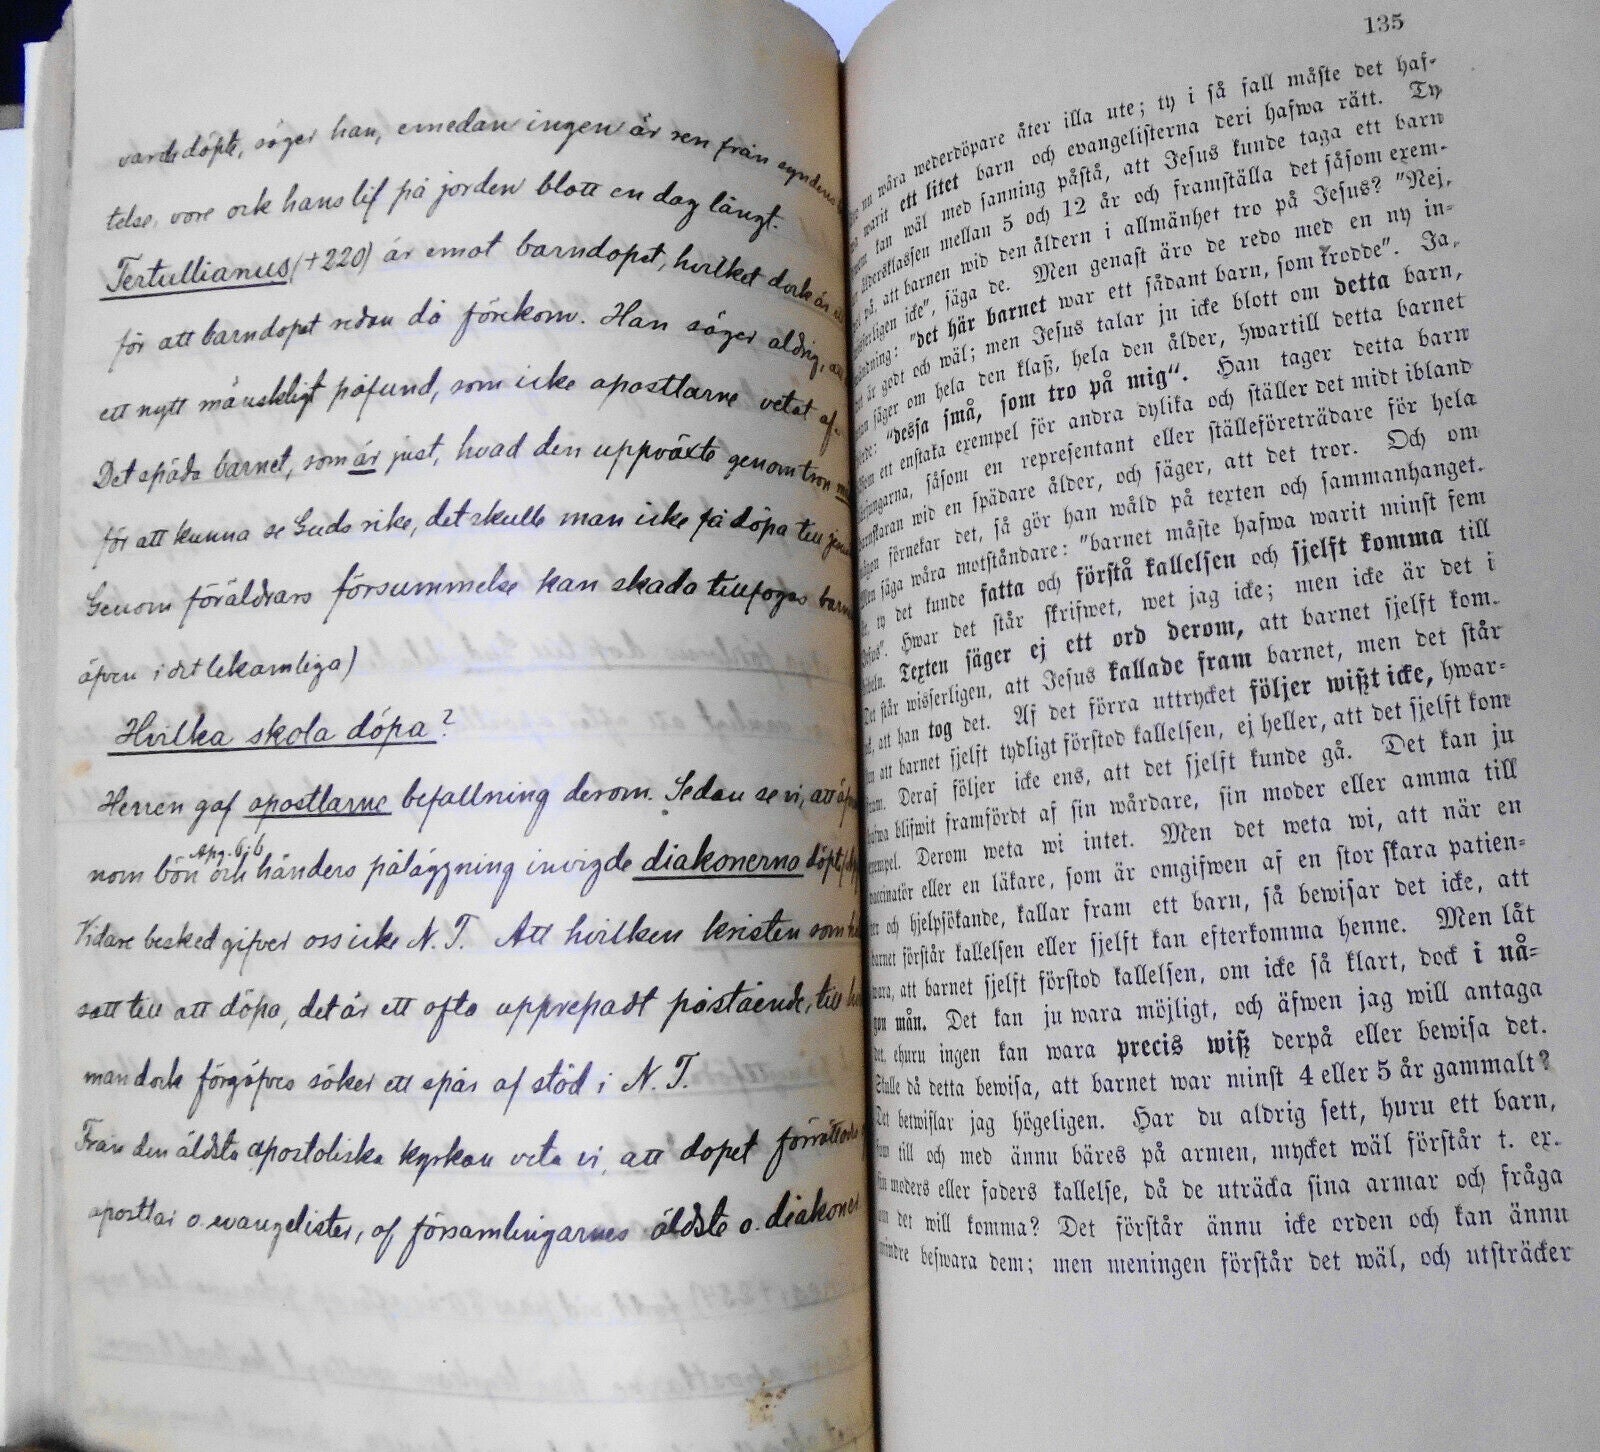 varda döpte, säger han, emedan ingen är ren från syndens
telse, vore ock hans lif på jorden blott en dag långt.
Tertullianus (+220) är emot barndopet, hvilket dock är
för att barndopet redan då förekom. Han säger aldrig,
ett nytt mänskligt påfund, som icke apostlarne vetat af.
Det späda barnet, som är just, hvad den uppväxte genom tron
för att kunna se Guds rike, det skulle man icke få döpa till
Genom föräldrars försummelse kan skada tillfogas
äfven i det lekamliga)
Hvilka skola döpa?
Herren gaf apostlarne befallning derom. Sedan se vi, att
Apg. 6:6
nom bön och händers påläggning invigde diakonerna döpt
Vidare besked gifver oss icke N. T. Att hvilken kristen som
satt till att döpa, det är ett ofta upprepadt påstående, till
man dock förgäfves söker ett spår af stöd i N. T.
Från den äldsta apostoliska kyrkan veta vi, att dopet
apostlar o. evangelister, af församlingarnes äldste o. diakoner
135
nu wåra wederdöpare åter illa ute; ty i så fall måste det haf-
warit ett litet barn och evangelisterna deri hafwa rätt. Ty
kan wäl med sanning påstå, att Jesus kunde taga ett barn
åldersklassen mellan 5 och 12 år och framställa det såsom exem-
på, att barnen wid den åldern i allmänhet tro på Jesus? "Nej,
icke", säga de. Men genast äro de redo med en ny in-
wändning: "det här barnet war ett sådant barn, som trodde". Ja,
är godt och wäl; men Jesus talar ju icke blott om detta barn,
säger om hela den klaß, hela den ålder, hwartill detta barnet
"dessa små, som tro på mig". Han tager detta barn
ett enstaka exempel för andra dylika och ställer det midt ibland
såsom en representant eller ställeföreträdare för hela
wid en spädare ålder, och säger, att det tror. Och om
förnekar det, så gör han wåld på texten och sammanhanget.
säga wåra motståndare: "barnet måste hafwa warit minst fem
ty det kunde fatta och förstå kallelsen och sjelft komma till
Hwar det står skrifwet, wet jag icke; men icke är det i
Texten säger ej ett ord derom, att barnet sjelft kom-
Det står wisserligen, att Jesus kallade fram barnet, men det står
att han tog det. Af det förra uttrycket följer wißt icke, hwar-
att barnet sjelft tydligt förstod kallelsen, ej heller, att det sjelft kom
fram. Deraf följer icke ens, att det sjelft kunde gå. Det kan ju
hafwa blifwit framfördt af sin wårdare, sin moder eller amma till
exempel. Derom weta wi intet. Men det weta wi, att när en
vaccinatör eller en läkare, som är omgifwen af en stor skara patien-
ter och hjelpsökande, kallar fram ett barn, så bewisar det icke, att
barnet förstår kallelsen eller sjelft kan efterkomma henne. Men låt
wara, att barnet sjelft förstod kallelsen, om icke så klart, dock i nå-
gon mån. Det kan ju wara möjligt, och äfwen jag will antaga
det, ehuru ingen kan wara precis wiß derpå eller bewisa det.
Skulle då detta bewisa, att barnet war minst 4 eller 5 år gammalt?
Det betwiflar jag högeligen. Har du aldrig sett, huru ett barn,
som till och med ännu bäres på armen, mycket wäl förstår t. ex.
sin moders eller faders kallelse, då de uträcka sina armar och fråga
om det will komma? Det förstår ännu icke orden och kan ännu
mindre beswara dem; men meningen förstår det wäl, och utsträcker